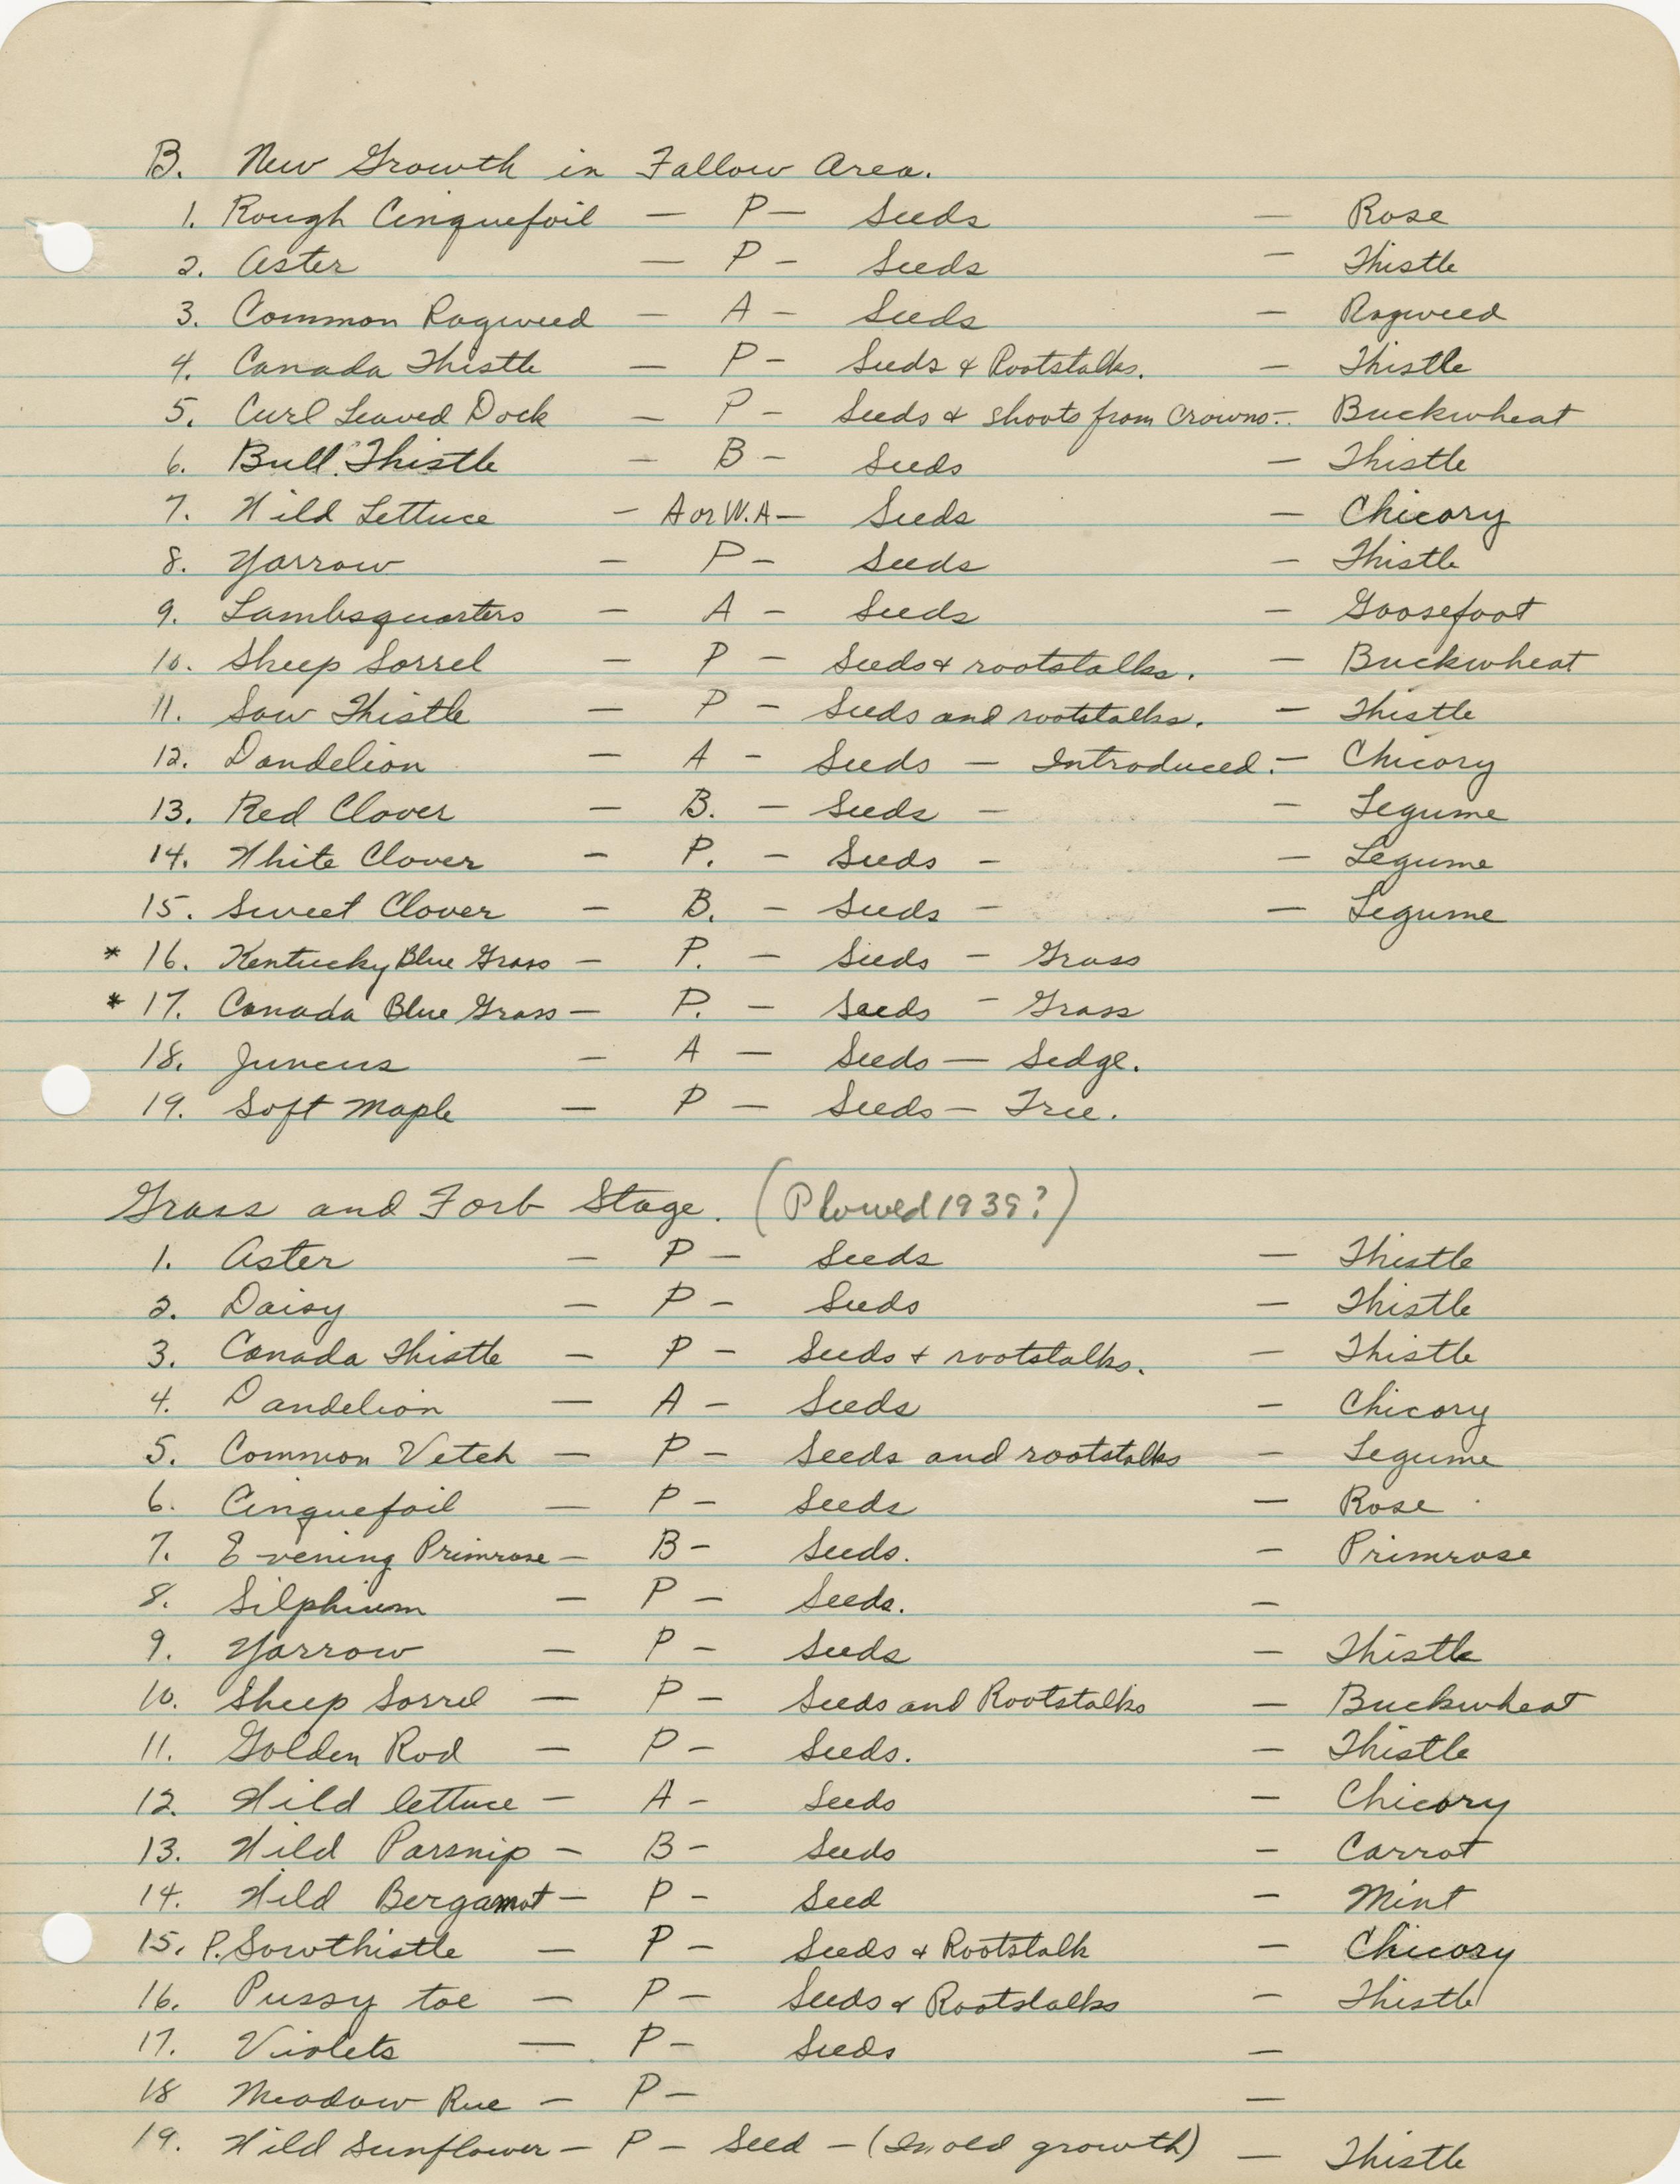 B. New Growth in Fallow Area.
1. Rough Cinquefoil — P — Seeds — Rose
2. Aster — P — Seeds — Thistle
3. Common Ragweed — A — Seeds — Ragweed
4. Canada Thistle — P — Seeds & Rootstalks. — Thistle
5. Curl Leaved Dock — P — Seeds & shoots from Crowns. — Buckwheat
6. Bull Thistle — B — Seeds — Thistle
7. Wild Lettuce — A or W.A — Seeds — Chicory
8. Yarrow — P — Seeds — Thistle
9. Lambsquarters — A — Seeds — Goosefoot
10. Sheep Sorrel — P — Seeds & rootstalks. — Buckwheat
11. Sow Thistle — P — Seeds and rootstalks. — Thistle
12. Dandelion — A — Seeds — Introduced. — Chicory
13. Red Clover — B. — Seeds — — Legume
14. White Clover — P. — Seeds — — Legume
15. Sweet Clover — B. — Seeds — — Legume
* 16. Kentucky Blue Grass — P. — Seeds — Grass
* 17. Canada Blue Grass — P. — Seeds — Grass
18. Juncus — A — Seeds — Sedge.
19. Soft Maple — P — Seeds — Tree.
Grass and Forb Stage. (Plowed 1939?)
1. Aster — P — Seeds — Thistle
2. Daisy — P — Seeds — Thistle
3. Canada Thistle — P — Seeds & rootstalks. — Thistle
4. Dandelion — A — Seeds — Chicory
5. Common Vetch — P — Seeds and rootstalks — Legume
6. Cinquefoil — P — Seeds — Rose
7. Evening Primrose — B — Seeds. — Primrose
8. Silphium — P — Seeds. —
9. Yarrow — P — Seeds — Thistle
10. Sheep Sorrel — P — Seeds and Rootstalks — Buckwheat
11. Golden Rod — P — Seeds. — Thistle
12. Wild lettuce — A — Seeds — Chicory
13. Wild Parsnip — B — Seeds — Carrot
14. Wild Bergamot — P — Seed — Mint
15. P. Sowthistle — P — Seeds & Rootstalk — Chicory
16. Pussy toe — P — Seeds & Rootstalks — Thistle
17. Violets — P — Seeds —
18 Meadow Rue — P — —
19. Wild Sunflower — P — Seed — (In old growth) — Thistle